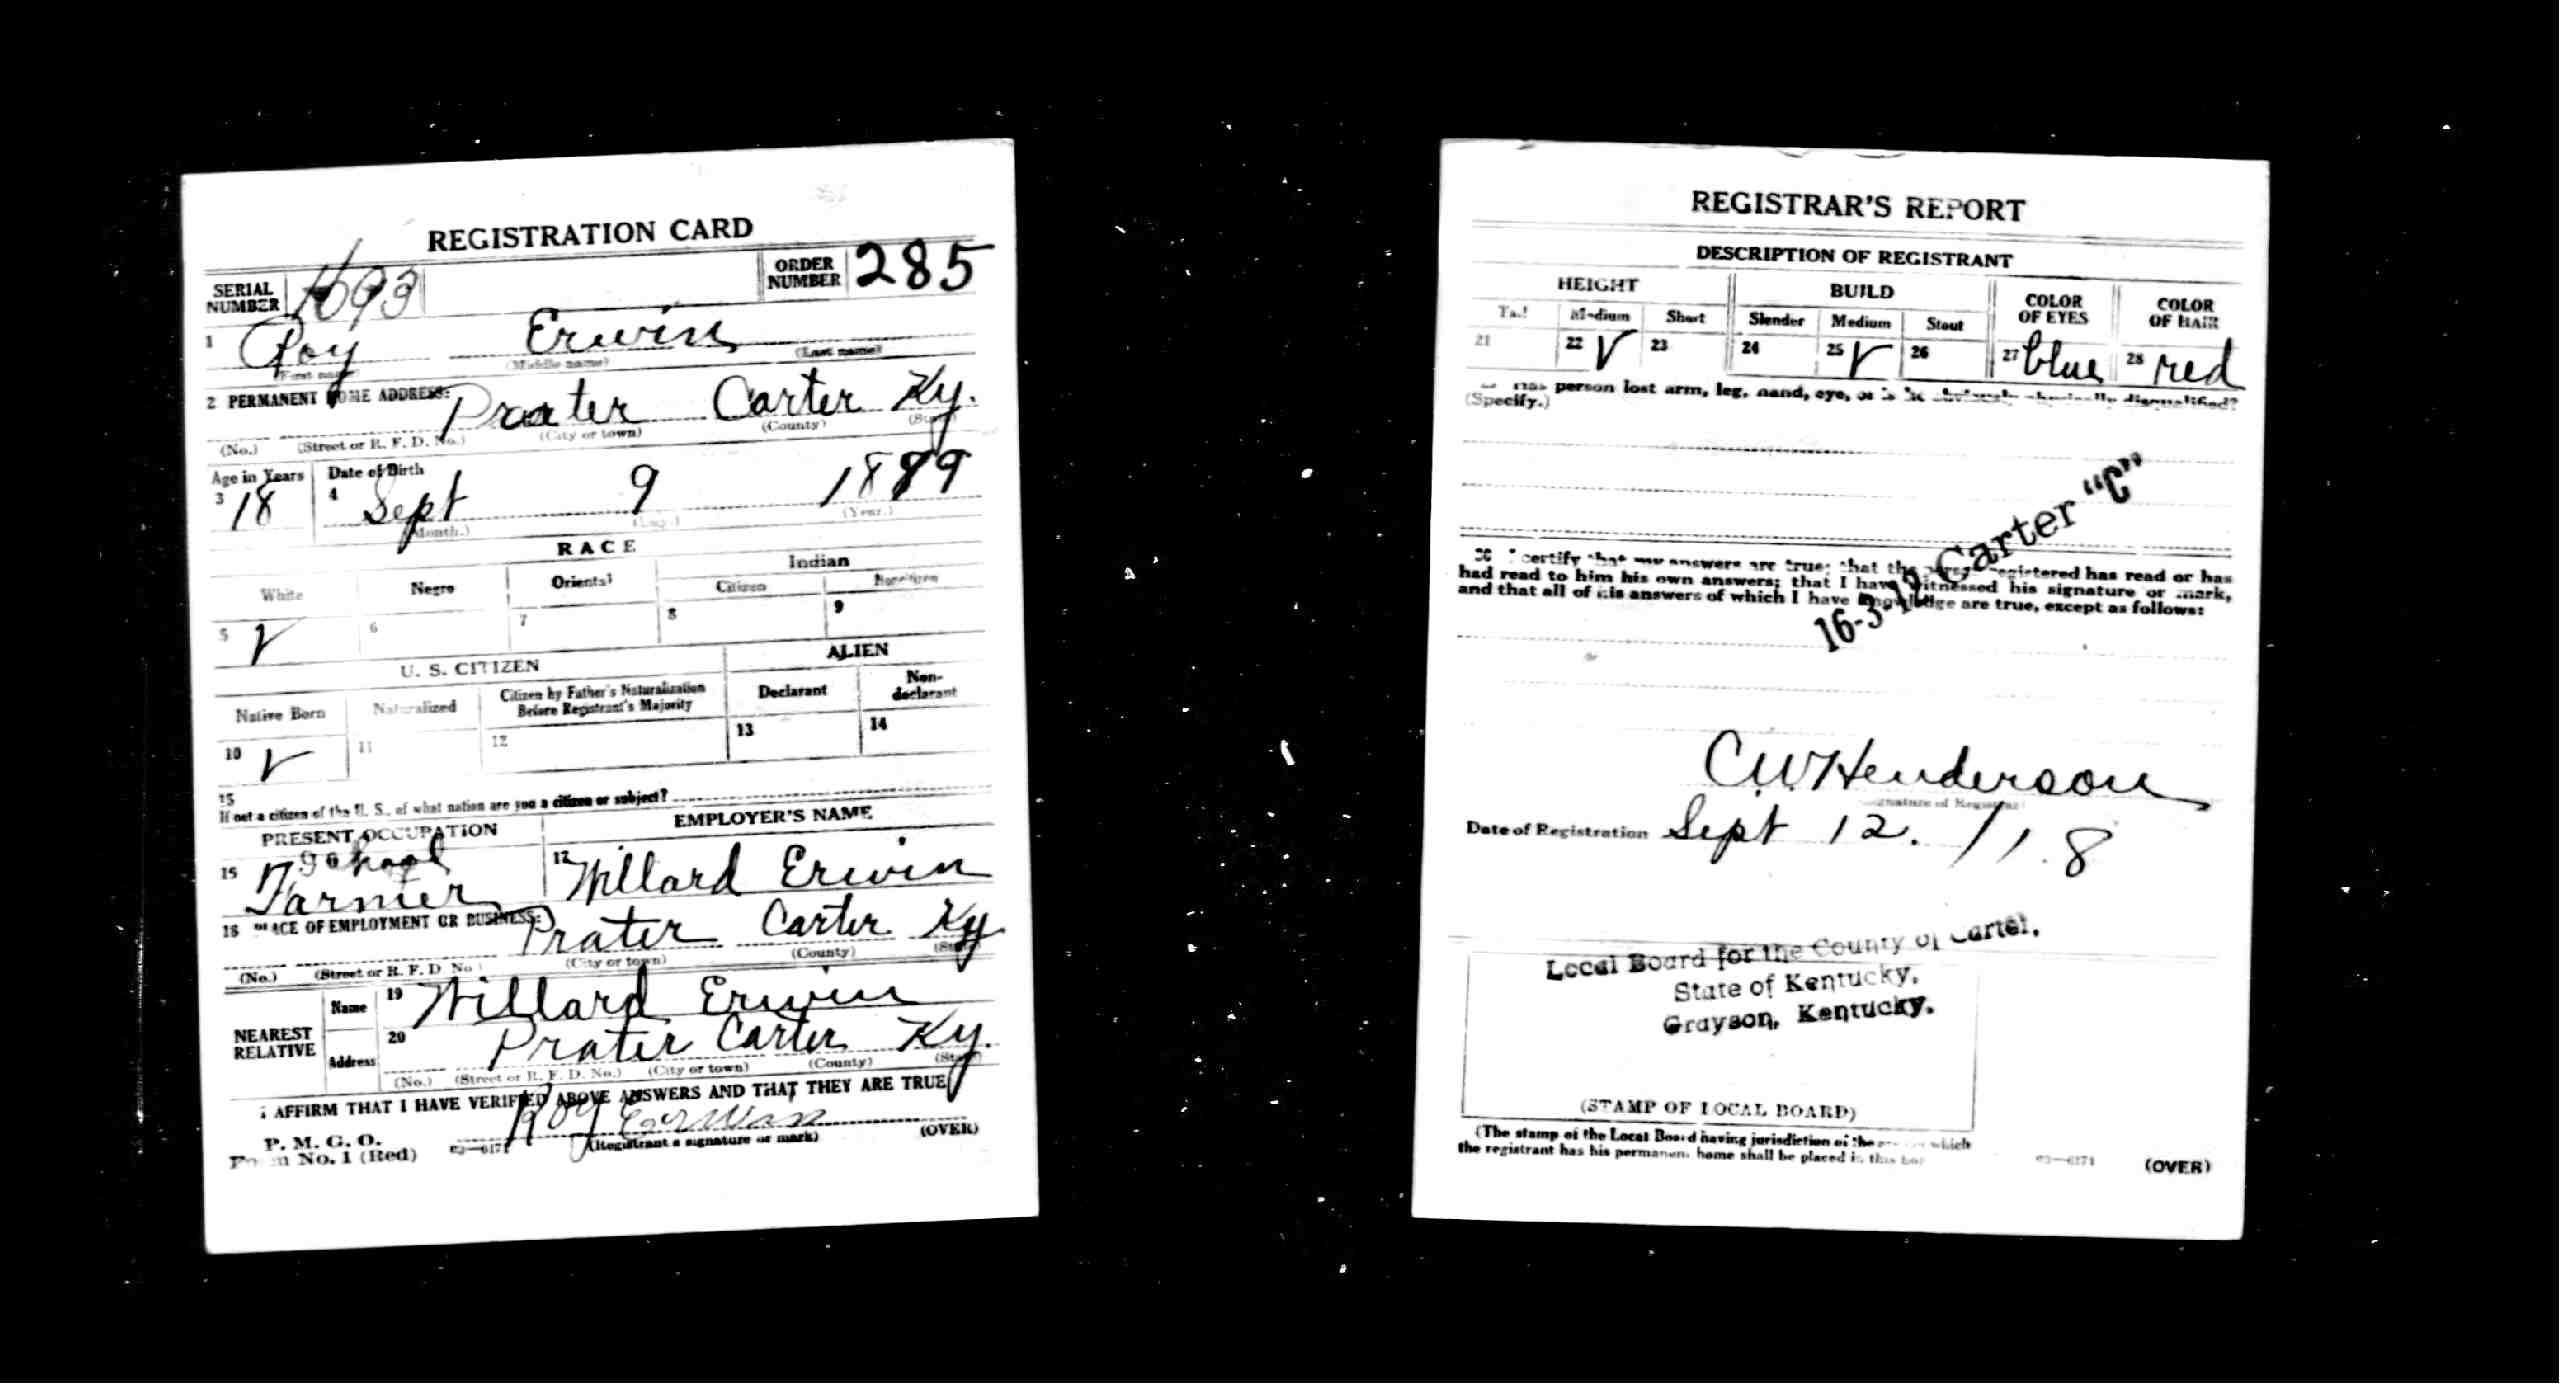 REGISTRATION CARD
SERIAL NUMBER 1693 ORDER NUMBER 285
1 Roy Erwin
(First name) (Middle name) (Last name)
2 PERMANENT HOME ADDRESS: Prater Carter Ky.
(No.) (Street or R. F. D. No.) (City or town) (County) (State)
Age in Years Date of Birth
3 18 4 Sept 9 1899
(Month.) (Day.) (Year.)
RACE
White Negro Oriental Indian
Citizen Noncitizen
5 V 6 7 8 9
U. S. CITIZEN ALIEN
Native Born Naturalized Citizen by Father's Naturalization Before Registrant's Majority Declarant Non-declarant
10 V 11 12 13 14
15
If not a citizen of the U. S., of what nation are you a citizen or subject?
PRESENT OCCUPATION EMPLOYER'S NAME
16 School Farmer 17 Willard Erwin
18 PLACE OF EMPLOYMENT OR BUSINESS: Prater Carter Ky
(No.) (Street or R. F. D. No.) (City or town) (County) (State)
NEAREST RELATIVE Name 19 Willard Erwin
Address 20 Prater Carter Ky.
(No.) (Street or R. F. D. No.) (City or town) (County) (State)
I AFFIRM THAT I HAVE VERIFIED ABOVE ANSWERS AND THAT THEY ARE TRUE
P. M. G. O.
Form No. 1 (Red) 03—6171 Roy Erwin
(Registrant's signature or mark) (OVER)
REGISTRAR'S REPORT
DESCRIPTION OF REGISTRANT
HEIGHT BUILD COLOR OF EYES COLOR OF HAIR
Tall Medium Short Slender Medium Stout
21 22 V 23 24 25 V 26 27 blue 28 red
29 Has person lost arm, leg, hand, eye, or is he obviously physically disqualified?
(Specify.)
16-3-12 Carter "C"
30 I certify that my answers are true; that the person registered has read or has
had read to him his own answers; that I have witnessed his signature or mark,
and that all of his answers of which I have knowledge are true, except as follows:
C.W. Henderson
(Signature of Registrar)
Date of Registration Sept 12. / 1.8
Local Board for the County of Carter,
State of Kentucky,
Grayson, Kentucky.
(STAMP OF LOCAL BOARD)
(The stamp of the Local Board having jurisdiction of the which
the registrant has his permanent home shall be placed in this box
03—6171 (OVER)